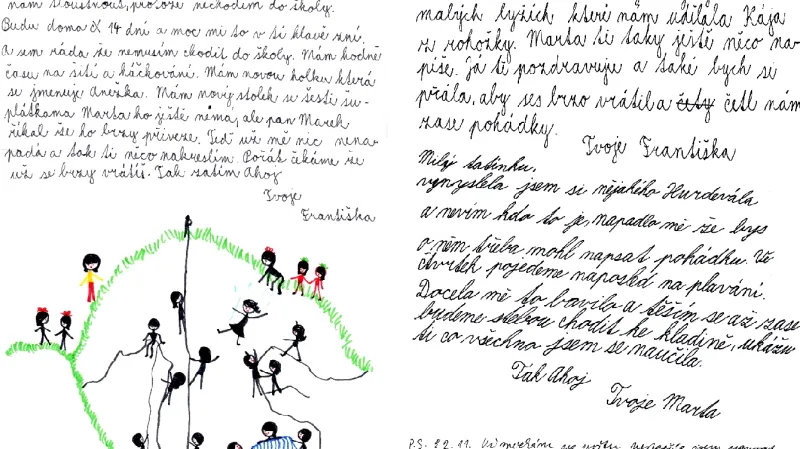 nám sloustnout, protože nechodím do školy.
Budu doma X 14 dní a moc mi to v tí hlavě zní.
A sem ráda že nemusím chodit do školy. Mám hodně
času na šití a háčkování. Mám novou holku která
se jmenuje Anežka. Mám nový stolek se šesti šu-
plátkama Marta ho ještě nemá, ale pan Marek
říkal že ho brzy přiveze. Teď už mě nic nena-
padá a tak ti něco nakreslím. Pořát čekáme že
už se brzy vrátíš. Tak zatím Ahoj
Tvoje
Františka
malých lyžích které nám udělala Kája
z rohožky. Marta ti taky ještě něco na-
píše. Já tě pozdravuju a také bych si
přála, aby ses brzo vrátil a čety četl nám
zase pohádky.
Tvoje Františka
Milý tatínku,
vymyslela jsem si nějakého Hurdevála
a nevím kdo to je, napadlo mě že bys
o něm třeba mohl napsat pohádku. Ve
čtvrtek pojedeme naposled na plavání.
Docela mě to bavilo a těším se až zase
budeme stebou chodit ke kladině, ukážu
ti co všechno jsem se naučila.
Tak Ahoj
Tvoje Marta
P.S. 22. 11.